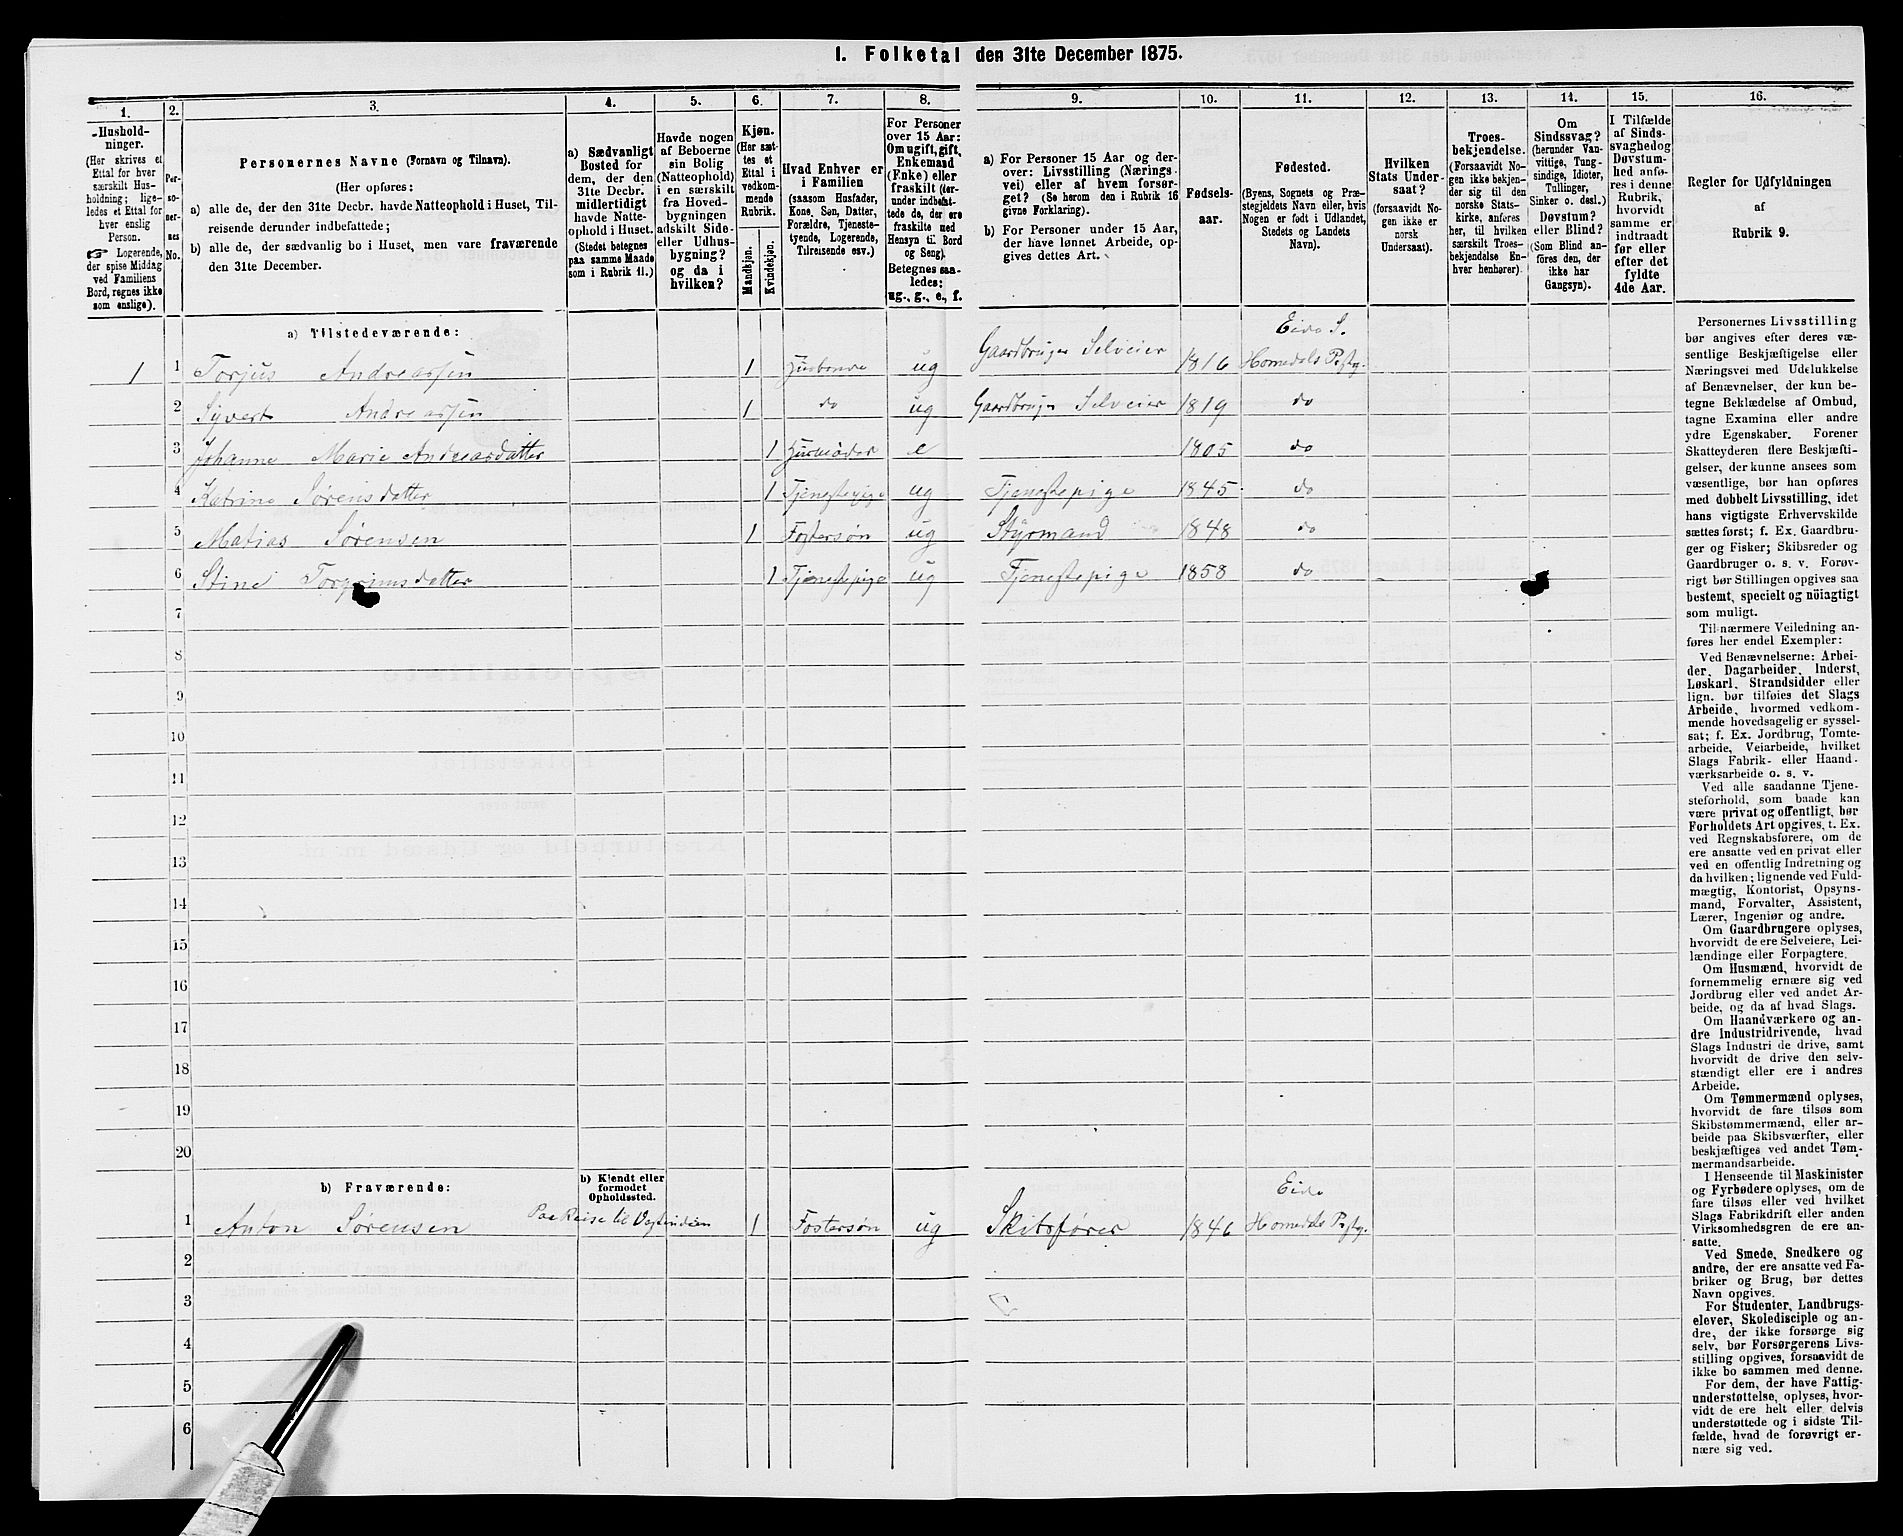 1. Folketal den 31te December 1875.
1. 2. 3. 4. 5. 6. 7. 8. 9. 10. 11. 12. 13. 14. 15. 16.
Hushold-
ninger.
(Her skrives et
Ettal for hver
særskilt Hus-
holdning; lige-
ledes et Ettal for
hver enslig
Person.
☞ Logerende,
der spise Middag
ved Familiens
Bord, regnes ikke
som enslige).
Per-
so-
ner-
nes
No.
Personernes Navne (Fornavn og Tilnavn).
(Her opføres:
a) alle de, der den 31te Decbr. havde Natteophold i Huset, Til-
reisende derunder indbefattede;
b) alle de, der sædvanlig bo i Huset, men vare fraværende
den 31te December.
a) Sædvanligt
Bosted for
dem, der den
31te Decbr.
midlertidigt
havde Natte-
ophold i Huset.
(Stedet betegnes
paa samme Maade
som i Rubrik 11.)
Havde nogen
af Beboerne
sin Bolig
(Natteophold)
i en særskilt
fra Hoved-
bygningen
adskilt Side-
eller Udhus-
bygning?
og da i
hvilken?
Kjøn.
(Her sæt-
tes et
Ettal i
vedkom-
mende
Rubrik.
Mandkjøn.
Kvindekjøn.
Hvad Enhver er
i Familien
(saasom Husfader,
Kone, Søn, Datter,
Forældre, Tjeneste-
tyende, Logerende,
Tilreisende osv.)
For Personer
over 15 Aar:
Om ugift, gift,
Enkemand
(Enke) eller
fraskilt (her-
under indbefat-
tede de, der ere
fraskilte med
Hensyn til Bord
og Seng).
Betegnes saa-
ledes:
ug., g., e., f.
a) For Personer 15 Aar og der-
over: Livsstilling (Nærings-
vei) eller af hvem forsør-
get? (Se herom den i Rubrik 16
givne Forklaring).
b) For Personer under 15 Aar,
der have lønnet Arbeide, op-
gives dettes Art.
Fødsels-
aar.
Fødested.
(Byens, Sognets og Præ-
stegjeldets Navn eller, hvis
Nogen er født i Udlandet,
Stedets og Landets
Navn).
Hvilken
Stats Under-
saat?
(forsaavidt No-
gen ikke er
norsk
Undersaat).
Troes-
bekjendelse.
(Forsaavidt No-
gen ikke bekjen-
der sig til den
norske Stats-
kirke, anføres
her, til hvilken
særskilt Troes-
bekjendelse En-
hver henhører).
Om
Sindssvag?
(herunder Van-
vittige, Tung-
sindige, Idioter,
Tullinger,
Sinker o. desl.)
Døvstum?
eller Blind?
(Som Blind an-
føres den, der
ikke har
Gangsyn).
I Tilfælde
af Sinds-
svaghed og
Døvstum-
hed anfø-
res i denne
Rubrik,
hvorvidt
samme er
indtraadt
før eller
efter det
fyldte
4de Aar.
Regler for Udfyldningen
af
Rubrik 9.
a) Tilstedeværende:
Eide S.
1 1 Torjus Andreassen 1 Husbonde ug Gaardbruger Selveier 1816 Homedals Præstg.
2 Syvert Andreassen 1 do ug Gaardbruger Selveier 1819 do
3 Johanne Marie Andreasdatter 1 Husmoder e 1805 do
4 Katrine Sørensdatter 1 Tjenestepige ug Tjenestepige 1845 do
5 Matias Sørensen 1 Fostersøn ug Styrmand 1848 do
6 Stine Torgrimsdatter 1 Tjenestepige ug Tjenestepige 1858 do
7
8
9
10
11
12
13
14
15
16
17
18
19
20
b) Fraværende:
b) Kjendt eller
formodet
Opholdssted.
Eide
1 Anton Sørensen Paa Reise til Vestindien 1 Fostersøn ug Skibsfører 1846 Homedals Præstg.
2
3
4
5
6
Personernes Livsstilling
bør angives efter deres væ-
sentlige Beskjæftigelse eller
Næringsvei med Udelukkelse
af Benævnelser, der kun be-
tegne Beklædelse af Ombud,
tagne Examina eller andre
ydre Egenskaber. Forener
Skatteyderen flere Beskjæfti-
gelser, der kunne ansees som
væsentlige, bør han opføres
med dobbelt Livsstilling, idet
hans vigtigste Erhvervskilde
sættes først; f. Ex. Gaardbru-
ger og Fisker; Skibsreder og
Gaardbruger o. s. v. Forøv-
rigt bør Stillingen opgives saa
bestemt, specielt og nöiagtigt
som muligt.
Til nærmere Veiledning an-
føres her endel Exempler:
Ved Benævnelserne: Arbei-
der, Dagarbeider, Inderst,
Løskarl, Strandsidder eller
lign. bør tilføies det Slags
Arbeide, hvormed vedkom-
mende hovedsagelig er syssel-
sat; f. Ex. Jordbrug, Tomte-
arbeide, Veiarbeide, hvilket
Slags Fabrik- eller Haand-
værksarbeide o. s. v.
Ved alle saadanne Tjene-
steforhold, som baade kan
være privat og offentligt, bør
Forholdets Art opgives, t. Ex.
ved Regnskabsførere, om de
ere ansatte ved en privat eller
ved en offentlig Indretning og
da hvilken; lignende ved Fuld-
mægtig, Kontorist, Opsyns-
mand, Forvalter, Assistent,
Lærer, Ingeniør og andre.
Om Gaardbrugere oplyses,
hvorvidt de ere Selveiere, Lei-
lændinge eller Forpagtere.
Om Husmænd, hvorvidt de
fornemmelig ernære sig ved
Jordbrug eller ved andet Ar-
beide, og da af hvad Slags.
Om Haandværkere og an-
dre Industridrivende, hvad
Slags Industri de drive, samt
hvorvidt de drive den selv-
stændigt eller ere i andres
Arbeide.
Om Tømmermænd oplyses,
hvorvidt de fare tilsøs som
Skibstømmermænd, eller ar-
beide paa Skibsværfter, eller
beskjæftiges ved andet Tøm-
mermandsarbeide.
I Henseende til Maskinister
og Fyrbødere oplyses, om de
fare tilsøs eller ved hvilket
Slags Fabrikdrift eller anden
Virksomhedsgren de ere an-
satte.
Ved Smede, Snedkere og
andre, der ere ansatte ved Fa-
briker og Brug, bør dettes
Navn opgives.
For Studenter, Landbrugs-
elever, Skoledisciple og an-
dre, der ikke forsørge sig
selv, bør Forsørgerens Livs-
stilling opgives, forsaavidt de
ikke bo sammen med denne.
For dem, der have Fattig-
understøttelse, oplyses, hvor-
vidt de ere helt eller delvis
understøttede og i sidste Til-
fælde, hvad de forøvrigt er-
nære sig ved.